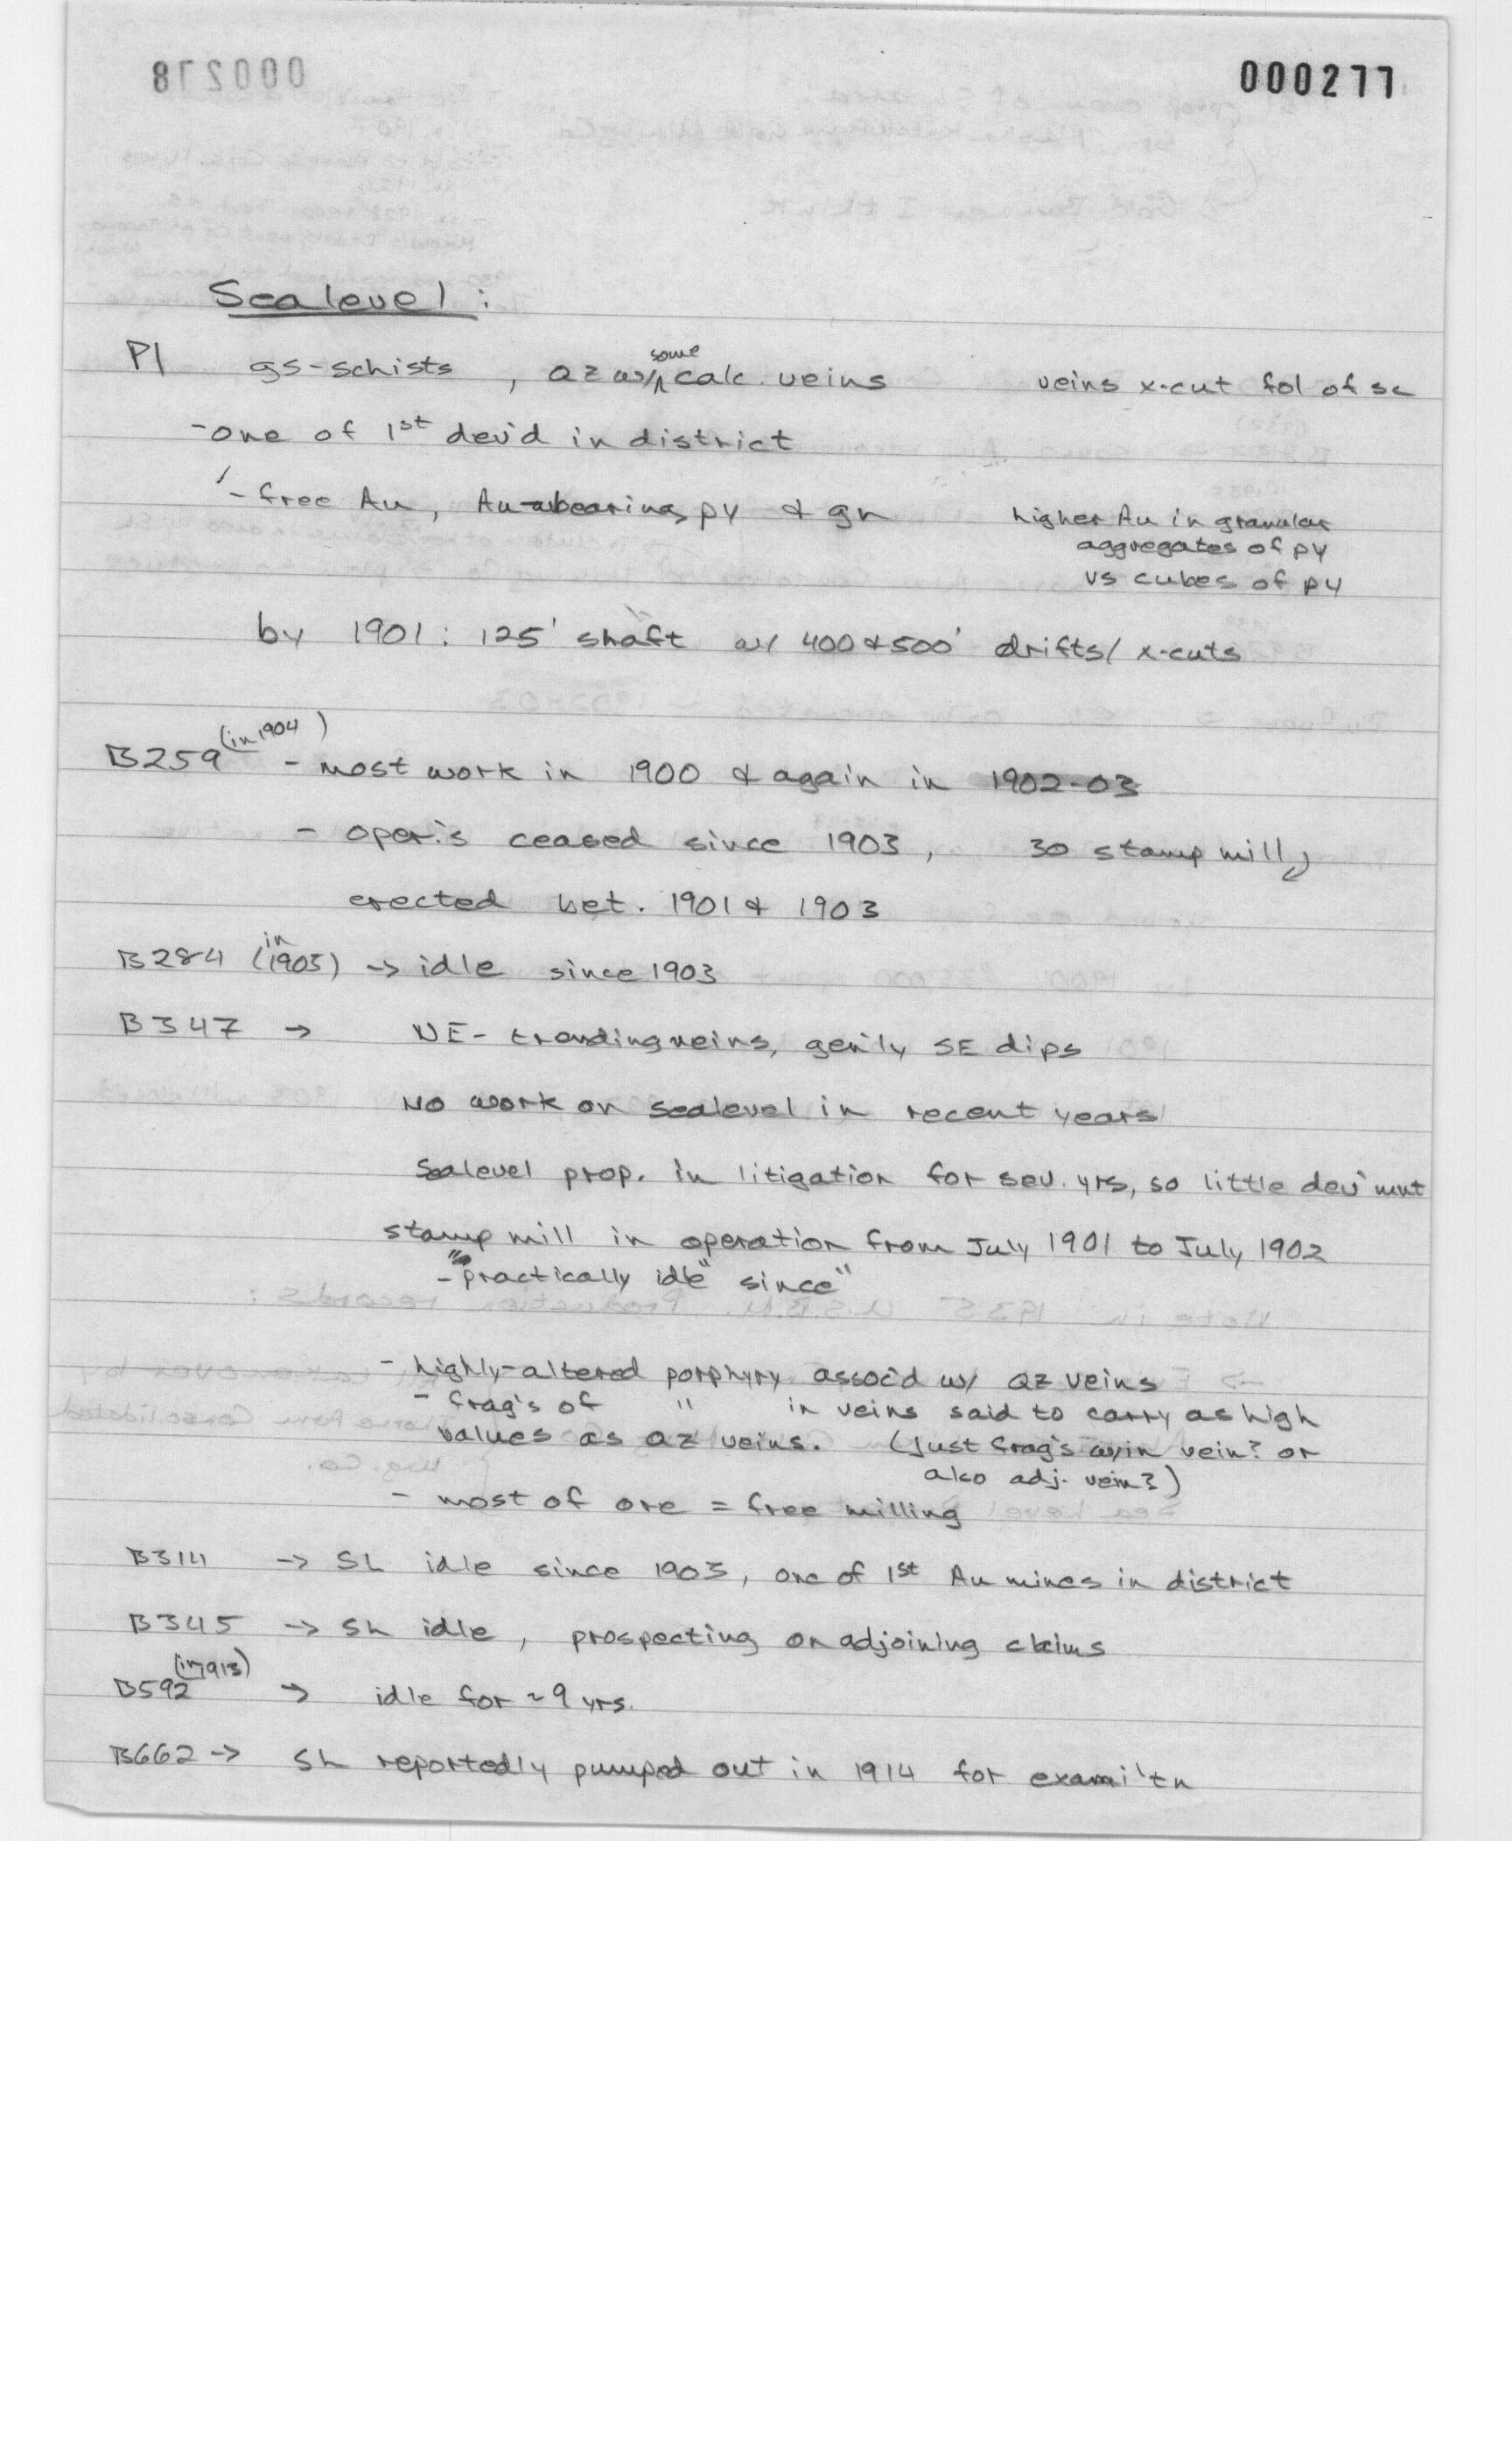 000277
Sealevel :
P1 gs-schists , qz w/ some calc. veins veins x-cut fol of sc
- one of 1st dev'd in district
- free Au, Au-bearing py & gn higher Au in granular
aggregates of py
vs cubes of py
by 1901 : 125' shaft w/ 400 & 500' drifts / x-cuts
B259 (in 1904) - most work in 1900 & again in 1902-03
- oper.'s ceased since 1903 , 30 stamp mill
erected bet. 1901 & 1903
B284 (in 1905) -> idle since 1903
B347 -> NE-trending veins, gen'ly SE dips
No work on sealevel in recent years
Sealevel prop. in litigation for sev. yrs, so little dev'mnt
stamp mill in operation from July 1901 to July 1902
- "practically idle" since"
- highly-altered porphyry assoc'd w/ qz veins
- frag's of " in veins said to carry as high
values as qz veins. (just frag's w/in vein? or
also adj. vein?)
- most of ore = free milling
B314 -> SL idle since 1903, one of 1st Au mines in district
B345 -> SL idle , prospecting on adjoining claims
B592 (in 1913) -> idle for ~9 yrs.
B662 -> SL reportedly pumped out in 1914 for exami'tn